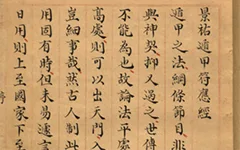 景祐遁甲符應經
遁甲之法綱條節目非
與神契抑又過之世傳
不能為也故論法平處
高處則可以出天門入
豈細事哉然古人制此
用固有時但未易遽言
日用則上至國家下至
序